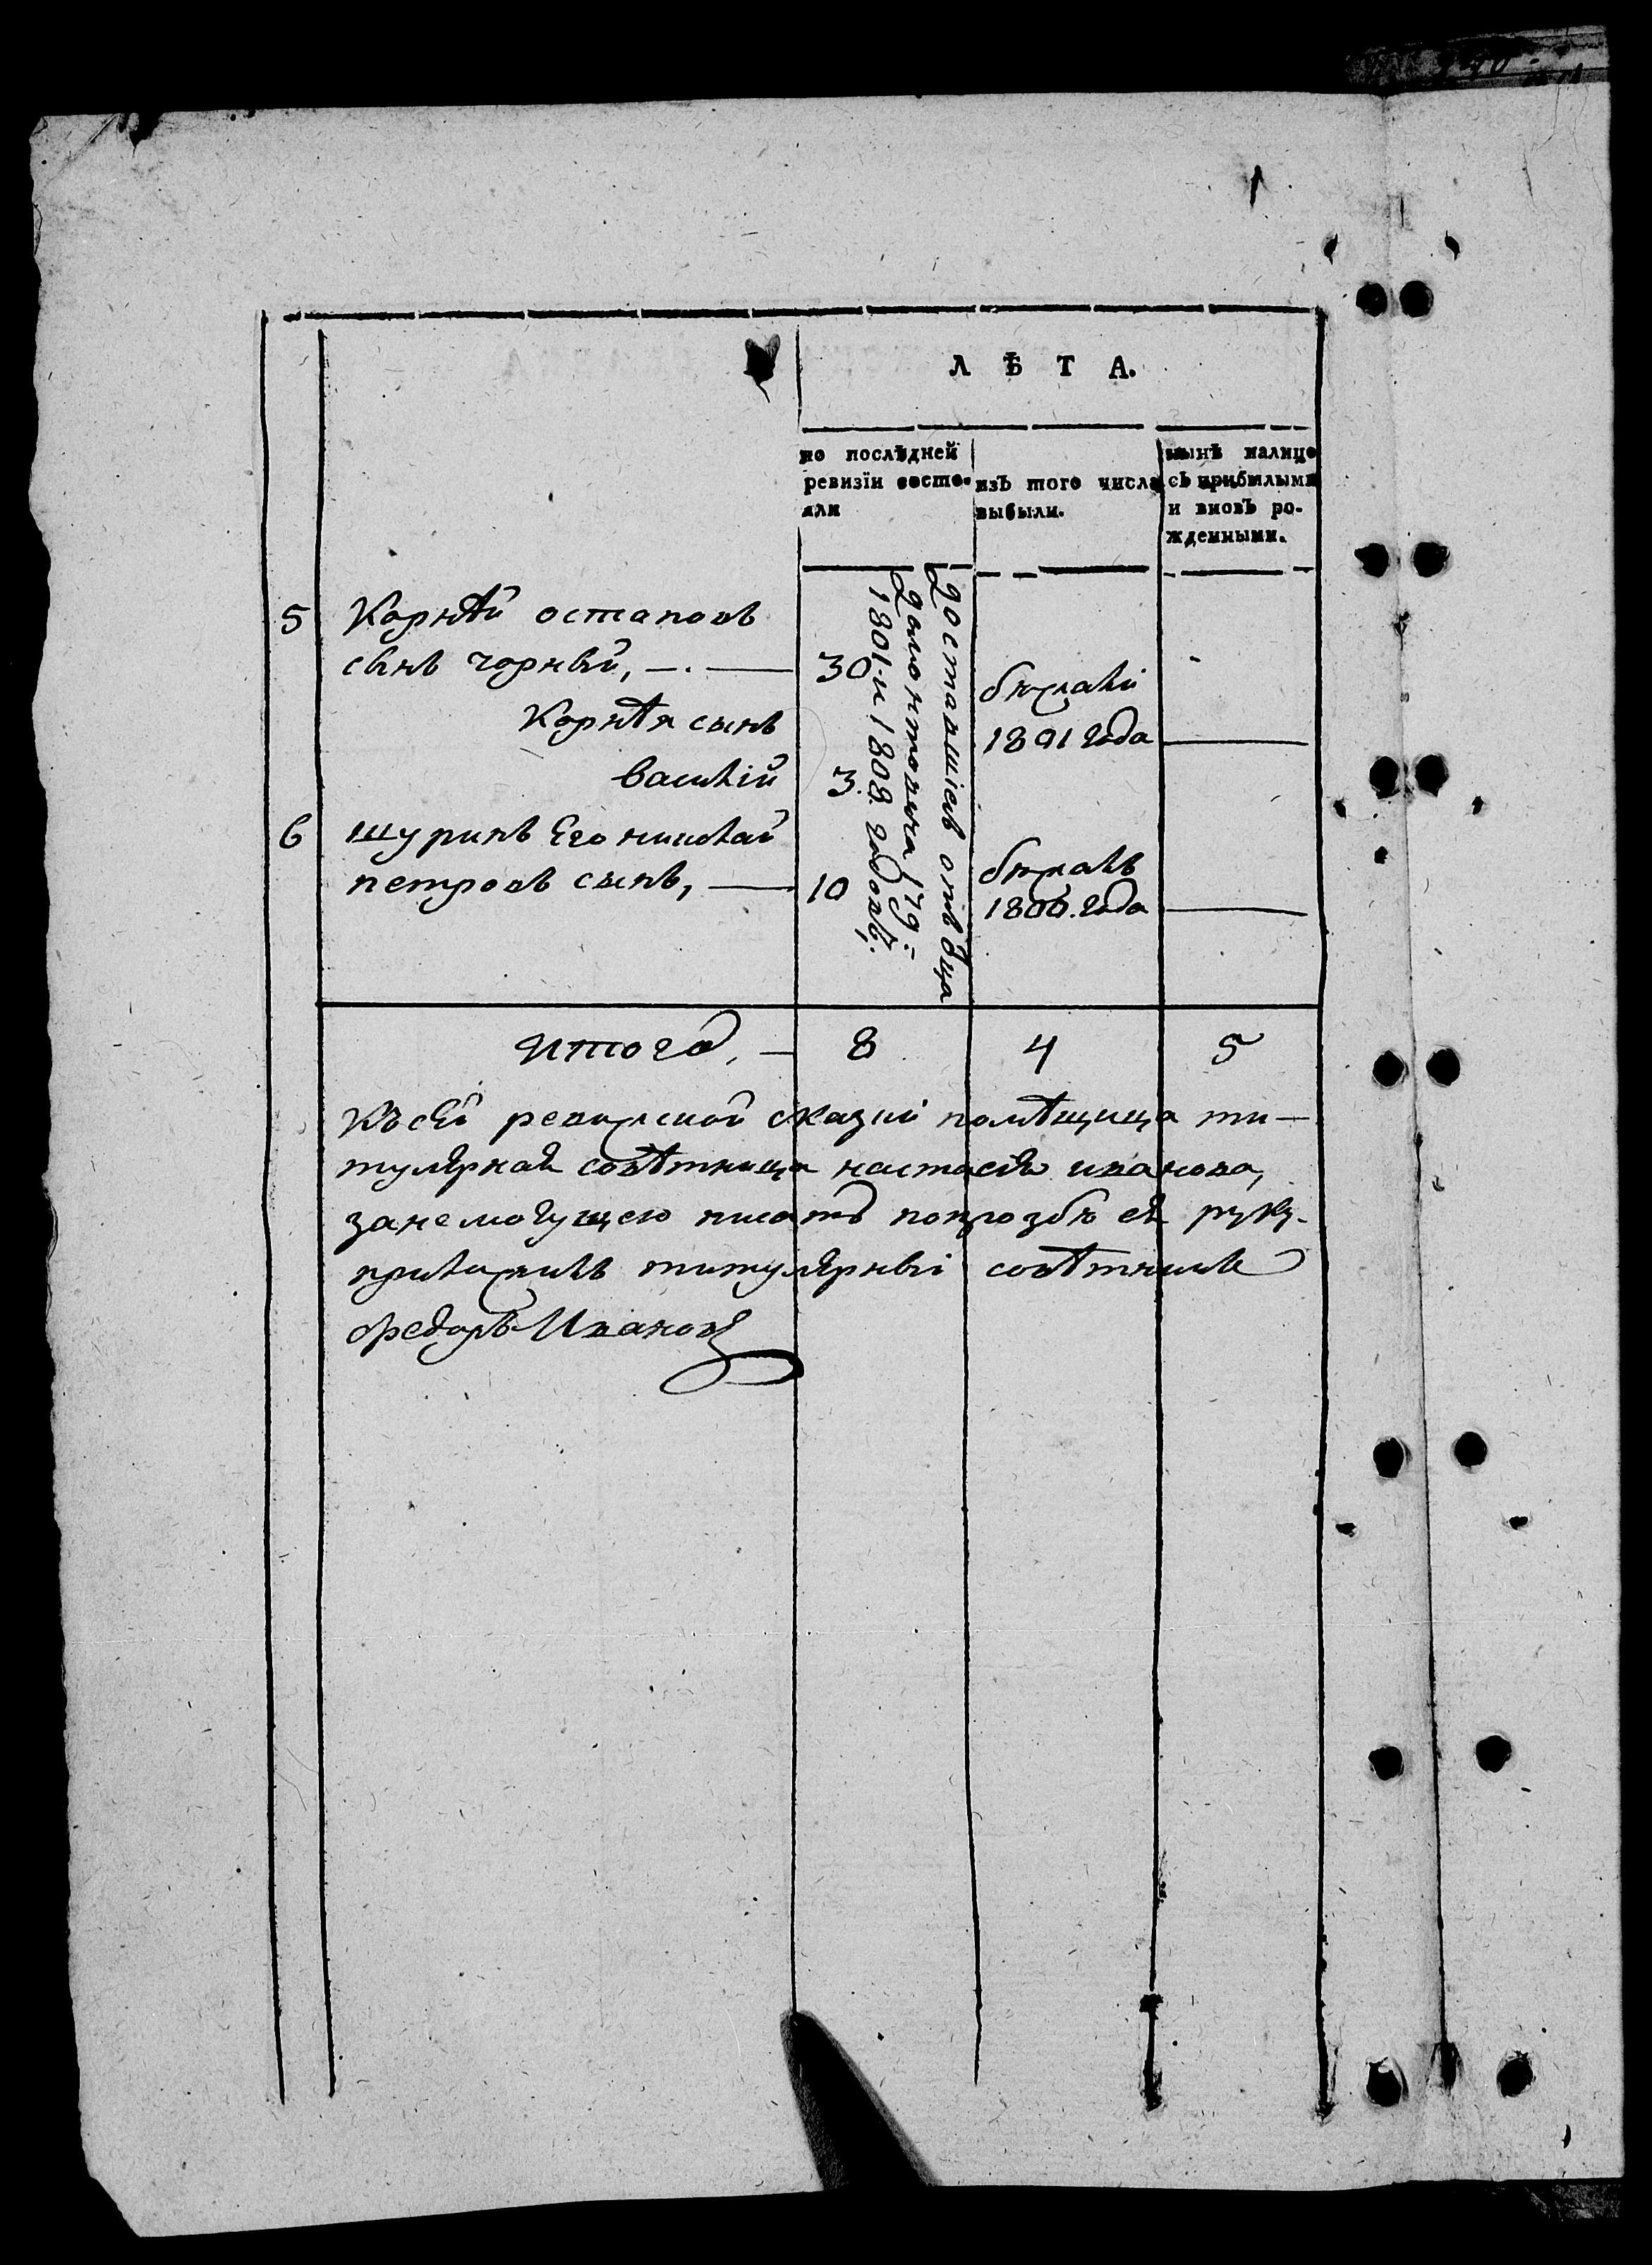 Л Ѣ Т А.
по послѣдней
ревизіи состо-
яли
изъ того числа
выбыли.
нынѣ налицо
съ прибылыми
и вновь ро-
жденными.
5 Корнѣй остаповъ
сынъ чорный, — . — 30
бѣжалъ
1801 года
Корнѣя сынъ
василій 3.
6 шуринъ Его николай
петровъ сынъ, — 10
бѣжалъ
1806. года
доставшіеся отъ
1801-и 1808. годовъ.
итого, — 8 4 5
Къ сей ревижской сказки помѣщица ти-
тулярная совѣтница настасья иванова,
занемогущею писать попрозбѣ ея руку.
приложилъ титулярный совѣтникъ
Федоръ Ивановъ